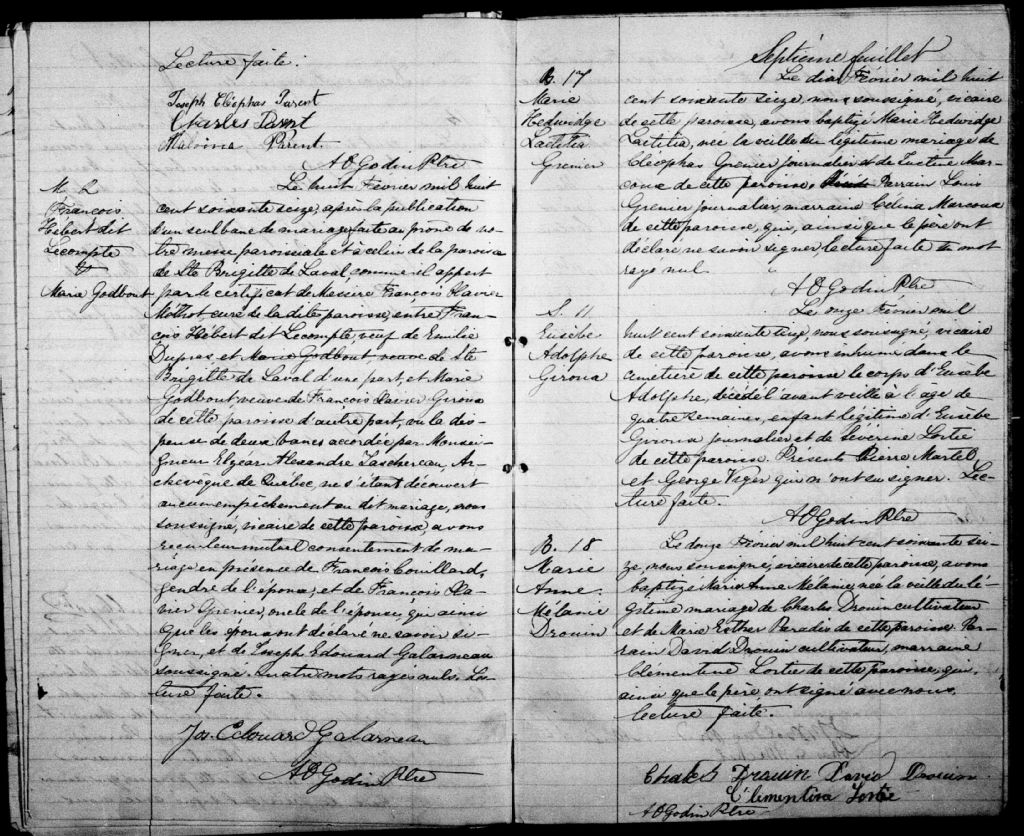 Lecture faite.
Joseph Cléophas Parent
Charles Parent
Malvina Parent
A O Godin Ptre
M. 2
François
Hébert dit
Lecompte
&
Marie Godbout
Le huit Février mil huit
cent soixante seize, après la publication
d'un seul banc de mariage faite au prone de no-
tre messe paroissiale et à celui de la paroisse
de Ste Brigitte de Laval, comme il appert
par le certificat de Messire François Xavier
Méthot curé de la dite paroisse, entre Fran-
çois Hébert dit Lecompte, veuf de Emilie
Dupras et Marie Godbout veuve de Ste
Brigitte de Laval d'une part, et Marie
Godbout veuve de François Xavier Giroux
de cette paroisse d'autre part, vu la dis-
pense de deux bancs accordée par Monsei-
gneur Elzéar Alexandre Taschereau, Ar-
chevêque de Québec, ne s'étant découvert
aucun empêchement au dit mariage, nous
soussigné, vicaire de cette paroisse, avons
reçu leur mutuel consentement de ma-
riage en présence de François Couillard,
gendre de l'épouse, et de François Xa-
vier Grenier, oncle de l'épouse, qui ainsi
que les époux ont déclaré ne savoir si-
gner, et de Joseph Edouard Galarneau
soussigné. quatre mots rayés nuls. Lec-
ture faite.
Jos. Edouard Galarneau
A O Godin Ptre
Septième feuillet
B. 17
Marie
Hedwidge
Laetitia
Grenier
Le dix Février mil huit
cent soixante seize, nous soussigné, vicaire
de cette paroisse, avons baptizé Marie Hedwidge
Laetitia, née la veille du légitime mariage de
Cléophas Grenier journalier et de Justine Mar-
coux de cette paroisse. Parrain Louis
Grenier journalier, marraine Célina Marcoux
de cette paroisse, qui, ainsi que le père ont
déclaré ne savoir signer, lecture faite un mot
rayé nul.
A O Godin Ptre
S. 11
Eusèbe
Adolphe
Giroux
Le onze Février mil
huit cent soixante seize, nous soussigné, vicaire
de cette paroisse, avons inhumé dans le
cemetière de cette paroisse le corps d'Eusèbe
Adolphe, décédé l'avant veille à l'âge de
quatre semaines, enfant légitime d'Eusèbe
Giroux journalier et de Séverine Lortie
de cette paroisse. Présents Pierre Martel
et George Viger qui n'ont su signer. Lec-
ture faite.
A O Godin Ptre
B. 18
Marie
Anne
Mélanie
Drouin
Le douze Février mil huit cent soixante sei-
ze, nous soussigné, vicaire de cette paroisse, avons
baptizé Marie Anne Mélanie, née la veille du lé-
gitime mariage de Charles Drouin cultivateur
et de Marie Esther Paradis de cette paroisse. Par-
rain David Drouin cultivateur, marraine
Clémentine Lortie de cette paroisse, qui,
ainsi que le père, ont signé avec nous.
lecture faite.
Charles Drouin David Drouin
Clementina Lortie
A O Godin Ptre